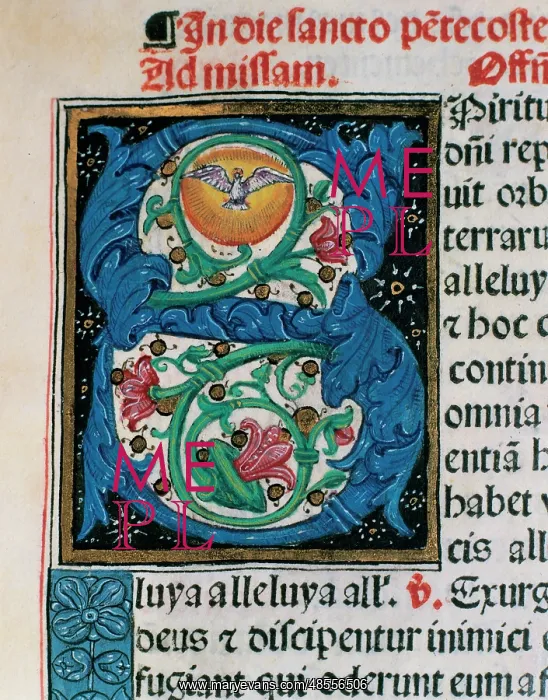 In die sancto pẽtecoste
Ad missam. Offñ
S
piritu
dñi rep
uit orb
terraru
alleluy
⁊ hoc c
contin
omnia
entiã h
habet v
cis all
luya alleluya all'. v̓. Exurg
deus ⁊ discipentur inimici e
fugiunt qui oderunt eum a f
ME
PL
ME
PL
www.maryevans.com/48556506